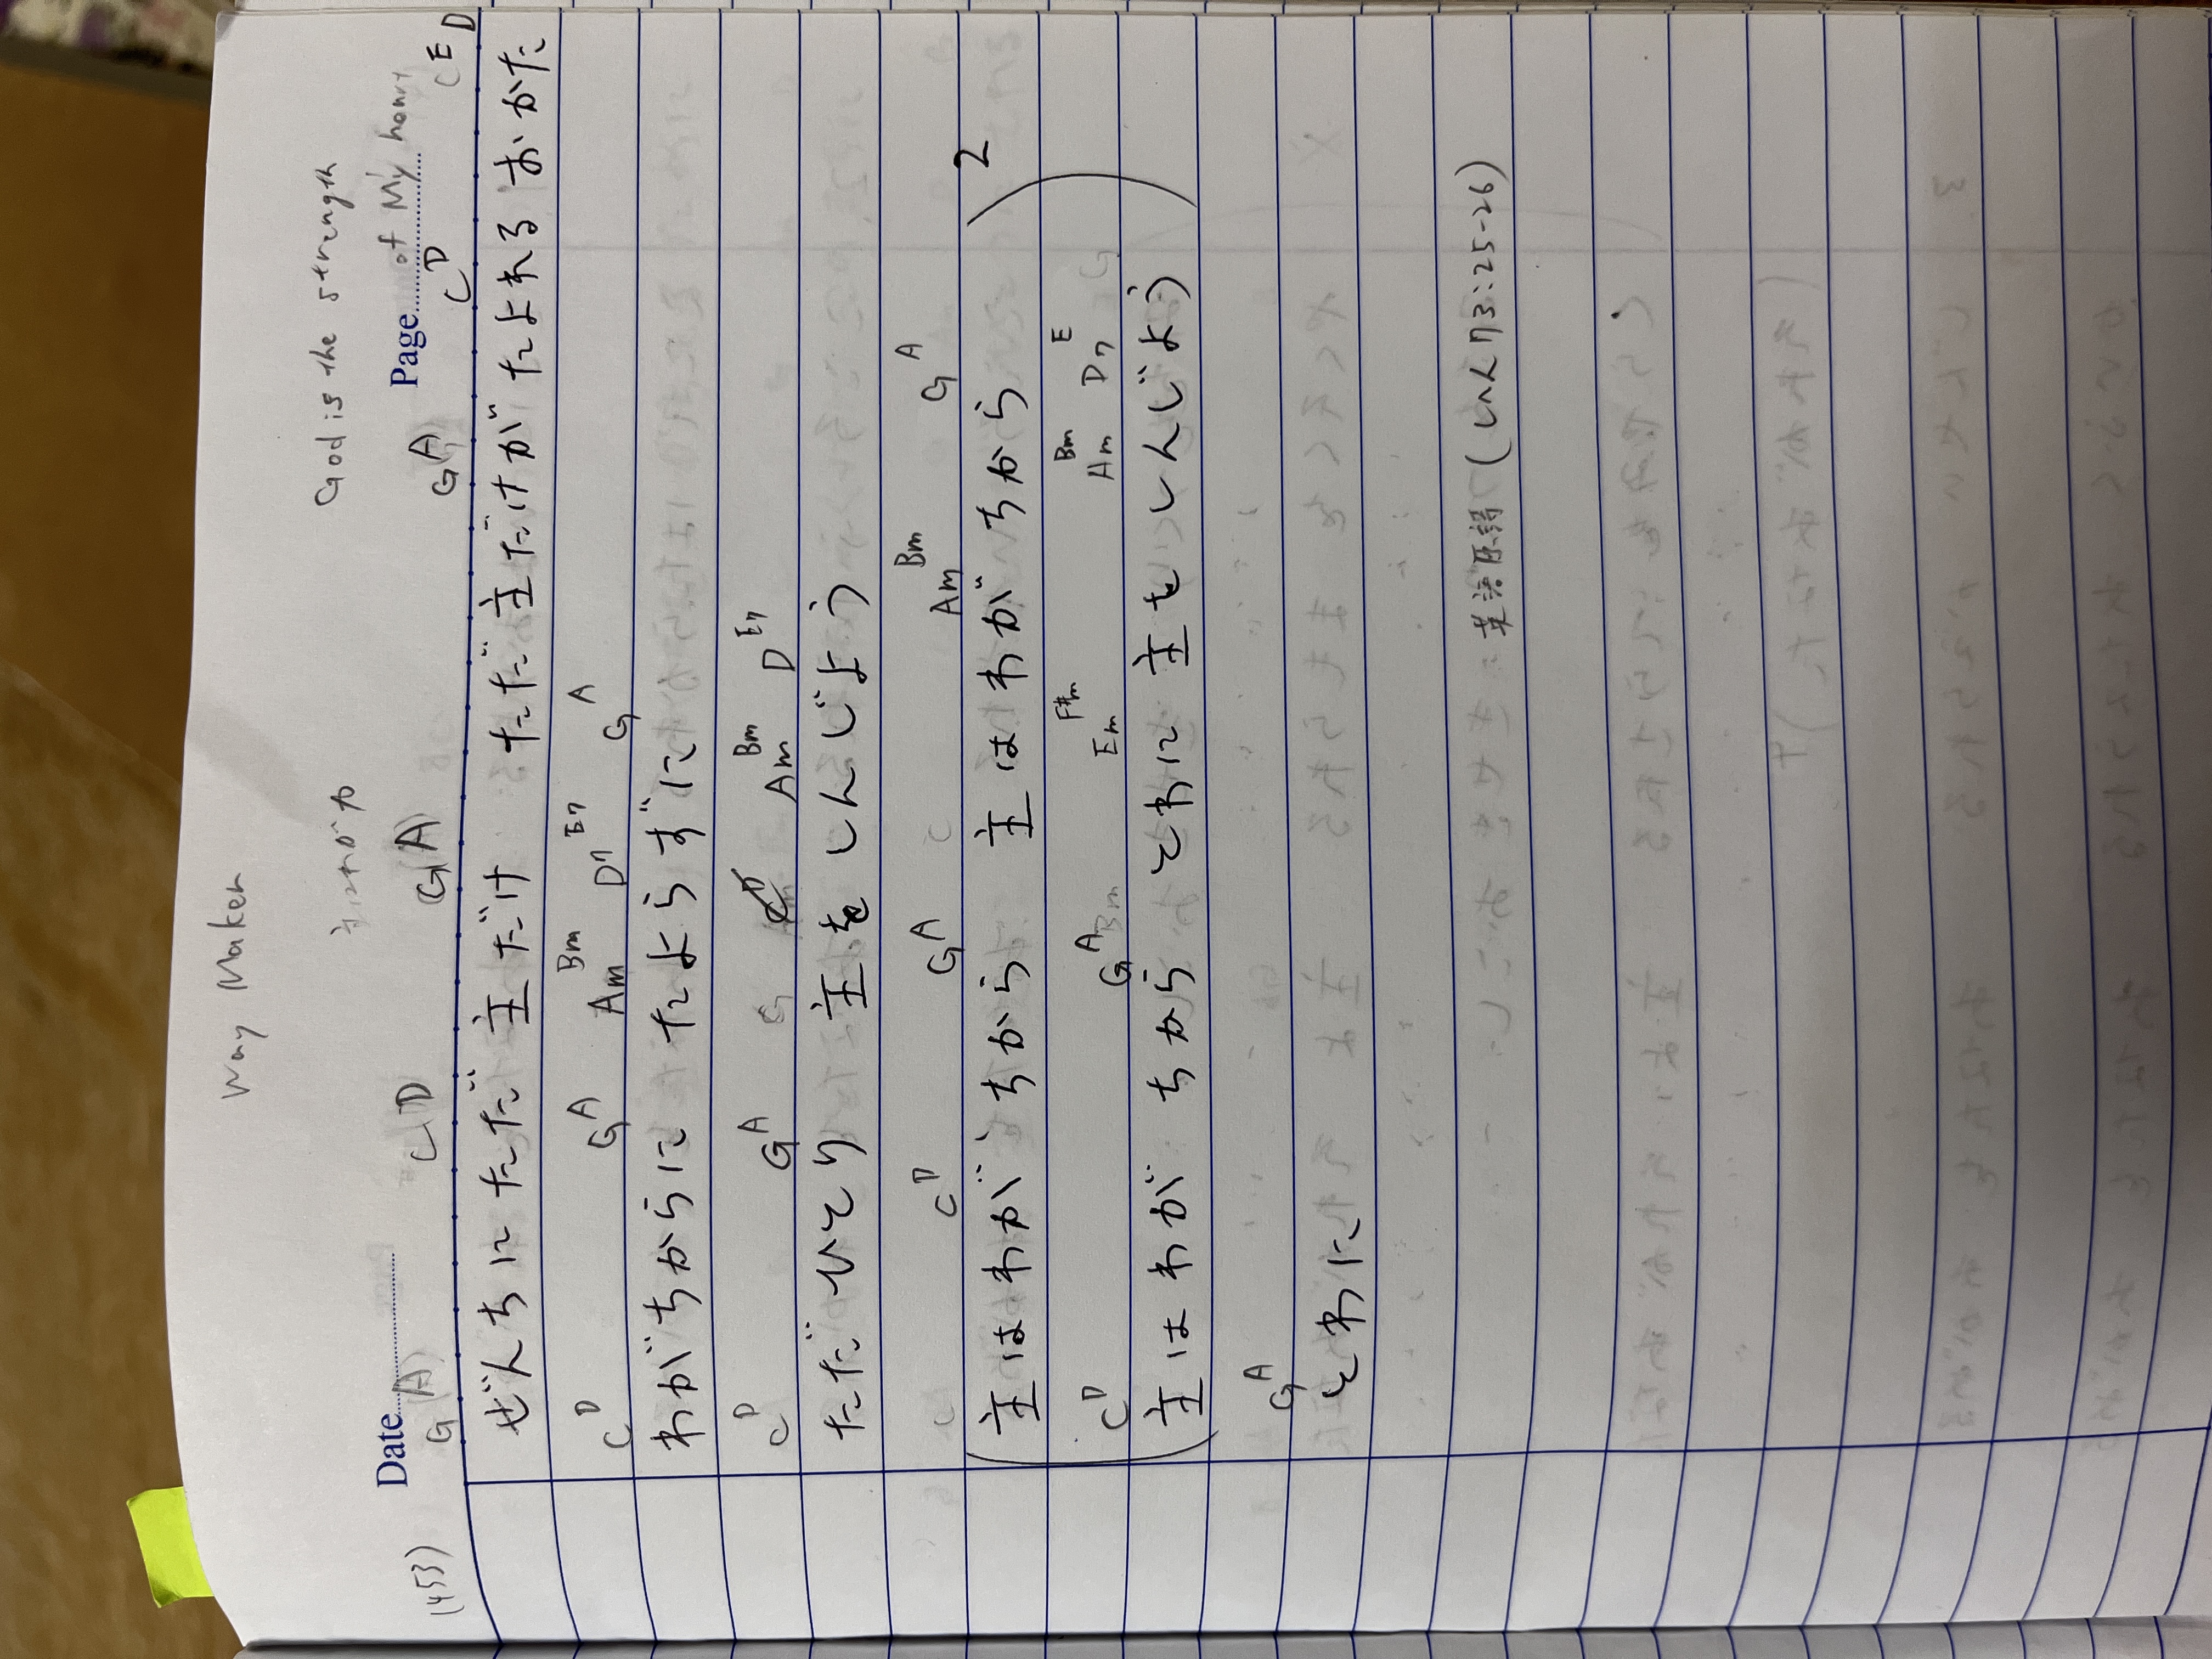 Way Maker
God is the strength
of My heart
Date Page
(453)
G (A) C D G A G A C D C E D
ぜんちに ただ 主だけ ただ 主だけが たよれる おかた
C D G A Am Bm D7 E7 G A
わがちからに たよらずに
C D G A G Am Bm D E7
ただ ひとり 主を しんじよう
C C D G A C Am Bm G A
(主はわが ちから 主はわがちから
C D G A Bm Em F#m Am Bm D7 E G
主はわが ちから とわに 主を しんじよう) 2
G A
とわに
英語原詩 (しへん73:25-26)